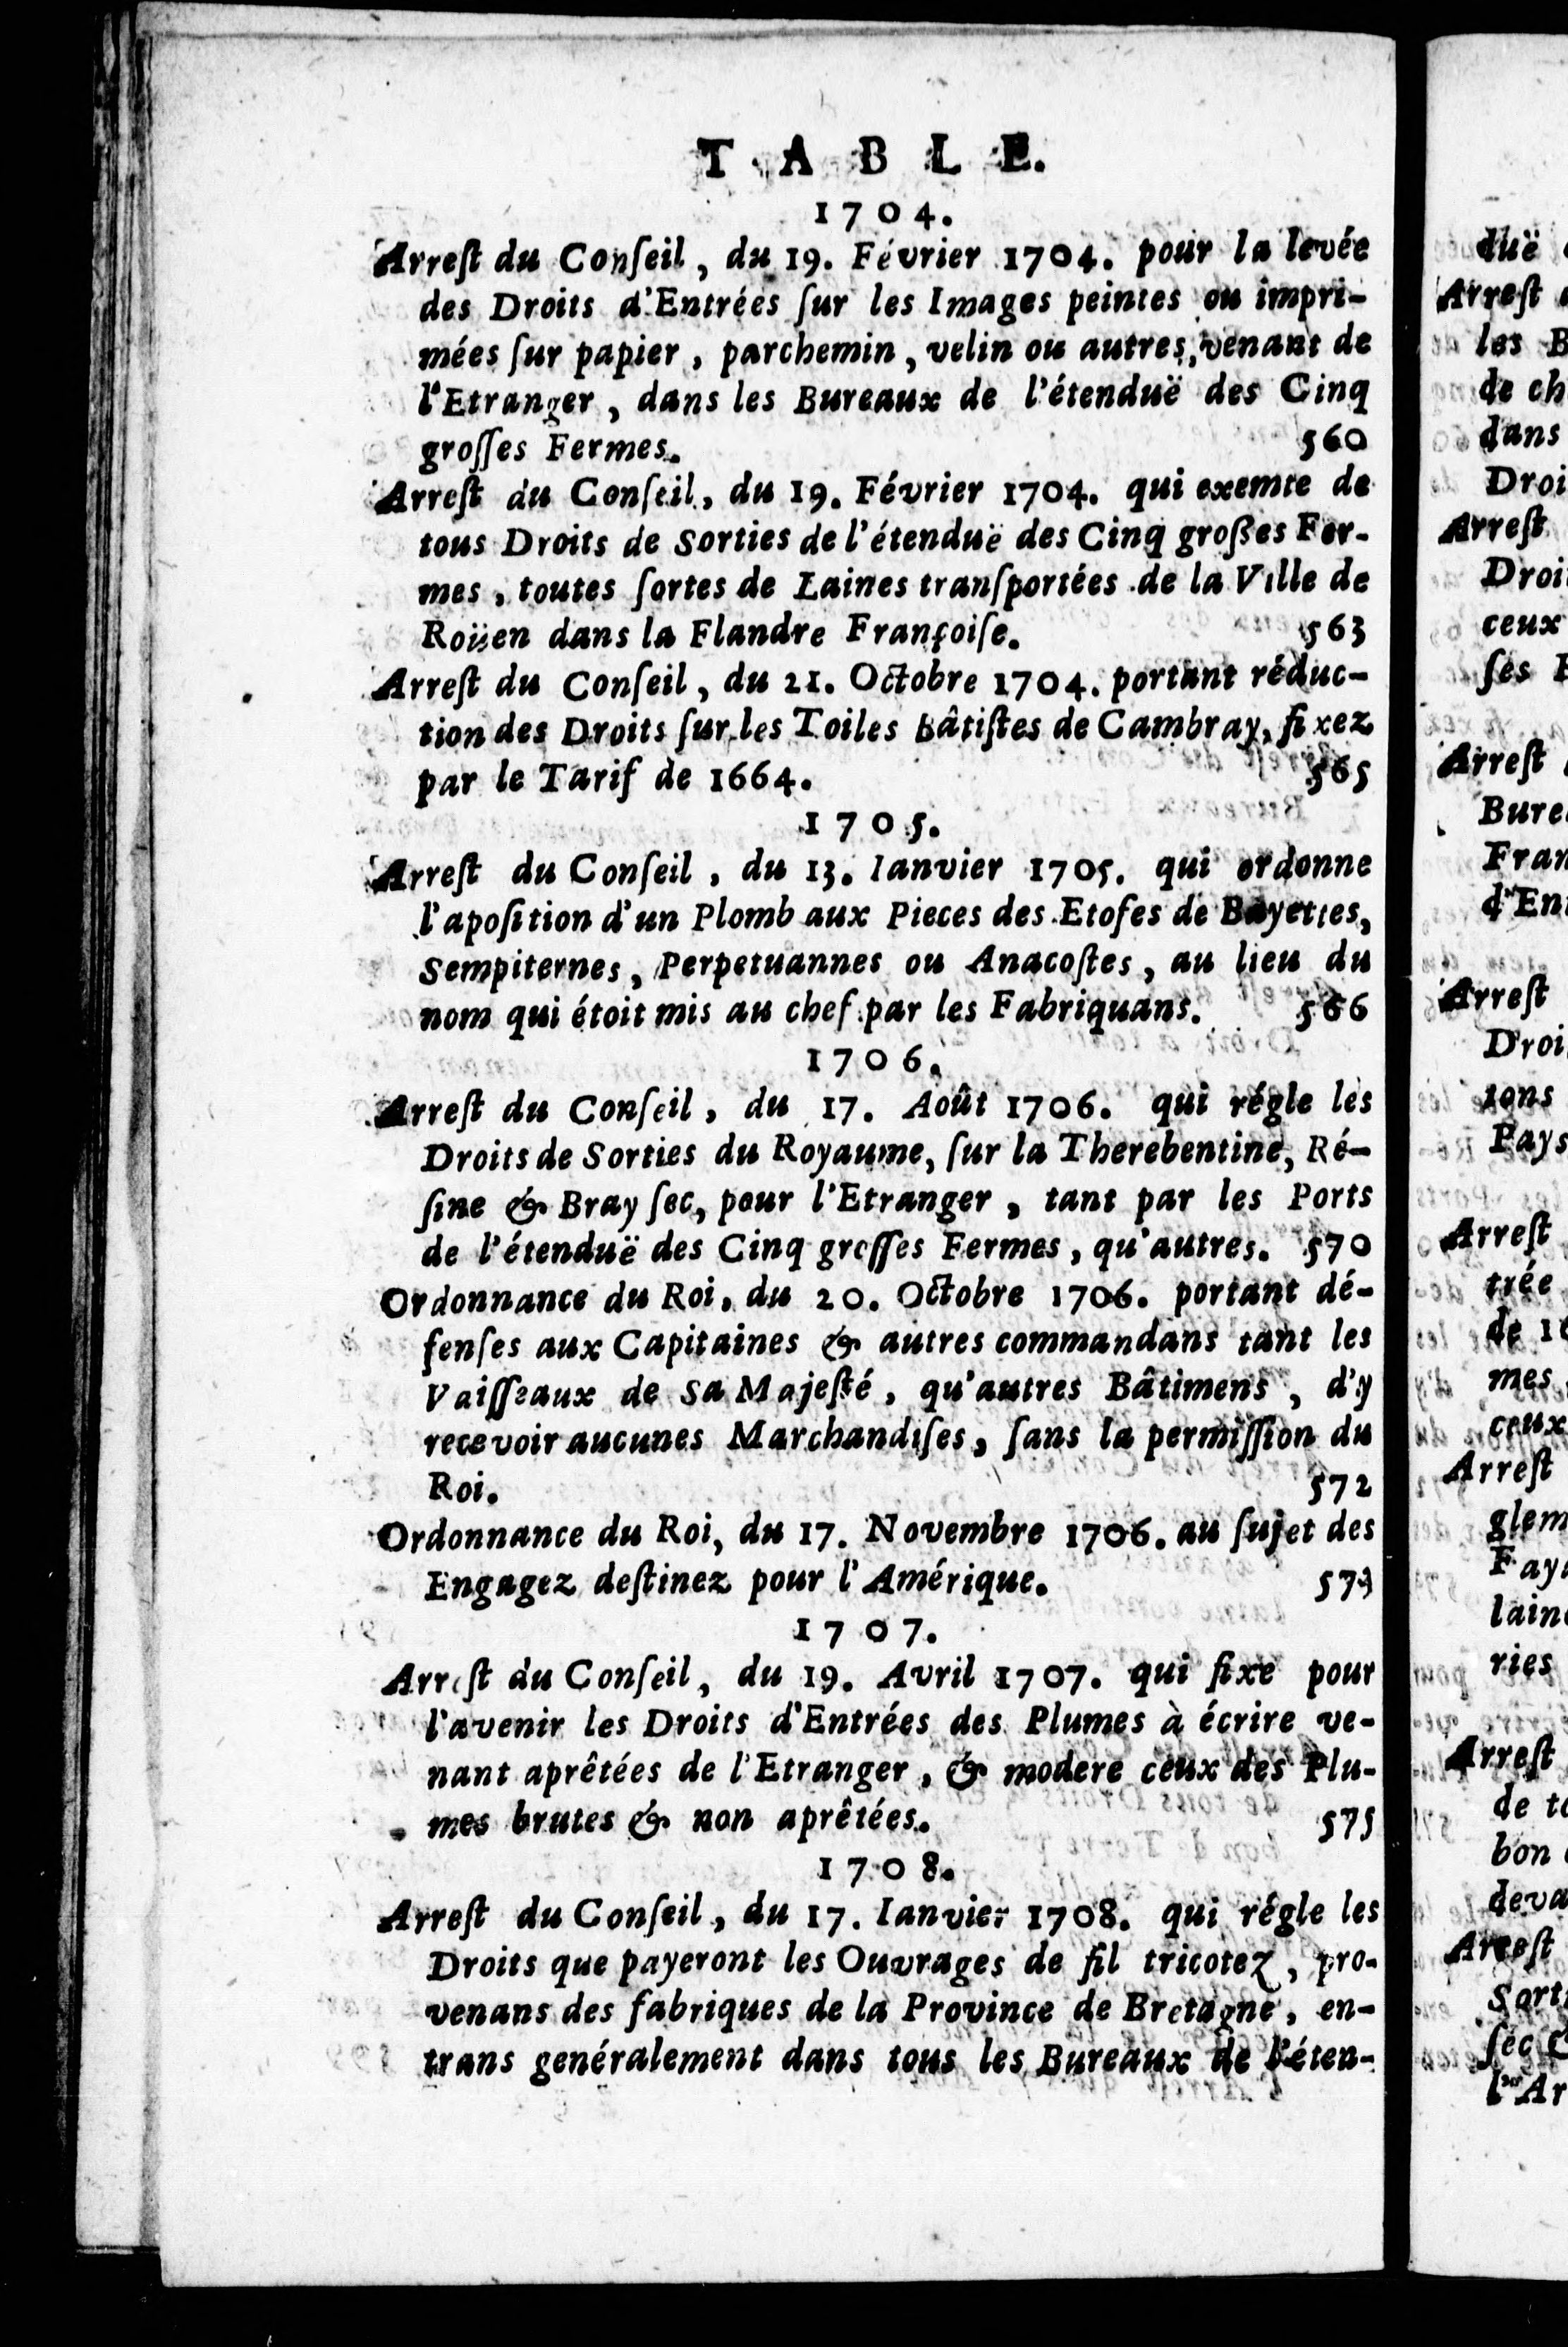 TABLE.
1704.
Arreſt du Conſeil, du 19. Février 1704. pour la levée
des Droits d'Entrées ſur les Images peintes ou impri-
mées ſur papier, parchemin, velin ou autres, venant de
l'Etranger, dans les Bureaux de l'étenduë des Cinq
groſſes Fermes. 560
Arreſt du Conſeil, du 19. Février 1704. qui exemte de
tous Droits de Sorties de l'étenduë des Cinq großes Fer-
mes, toutes ſortes de Laines tranſportées de la Ville de
Roüen dans la Flandre Françoiſe. 563
Arreſt du Conſeil, du 21. Octobre 1704. portant réduc-
tion des Droits ſur les Toiles Bâtiſtes de Cambray, fixez
par le Tarif de 1664. 565
1705.
Arreſt du Conſeil, du 13. Ianvier 1705. qui ordonne
l'apoſition d'un Plomb aux Pieces des Etofes de Bayettes,
Sempiternes, Perpetuannes ou Anacoſtes, au lieu du
nom qui étoit mis au chef par les Fabriquans. 566
1706.
Arreſt du Conſeil, du 17. Août 1706. qui régle les
Droits de Sorties du Royaume, ſur la Therebentine, Ré-
ſine & Bray ſec, pour l'Etranger, tant par les Ports
de l'étenduë des Cinq groſſes Fermes, qu'autres. 570
Ordonnance du Roi, du 20. Octobre 1706. portant dé-
fenſes aux Capitaines & autres commandans tant les
Vaiſſeaux de Sa Majeſté, qu'autres Bâtimens, d'y
recevoir aucunes Marchandiſes, ſans la permiſſion du
Roi. 572
Ordonnance du Roi, du 17. Novembre 1706. au ſujet des
Engagez deſtinez pour l'Amérique. 573
1707.
Arreſt du Conſeil, du 19. Avril 1707. qui fixe pour
l'avenir les Droits d'Entrées des Plumes à écrire ve-
nant aprêtées de l'Etranger, & modere ceux des Plu-
mes brutes & non aprêtées. 575
1708.
Arreſt du Conſeil, du 17. Ianvier 1708. qui régle les
Droits que payeront les Ouvrages de fil tricotez, pro-
venans des fabriques de la Province de Bretagne, en-
trans genéralement dans tous les Bureaux de l'éten-
duë
Arreſt
les B
de ch
dans
Droi
Arreſt
Droi
ceux
ſes F
Arreſt
Bure
Fran
d'En
Arreſt
Droi
Pays
Arreſt
trée
de 16
mes
ceux
Arreſt
glem
Faya
laine
ries
Arreſt
de to
bon
deva
Arreſt
Sort
ſec &
l'Ar